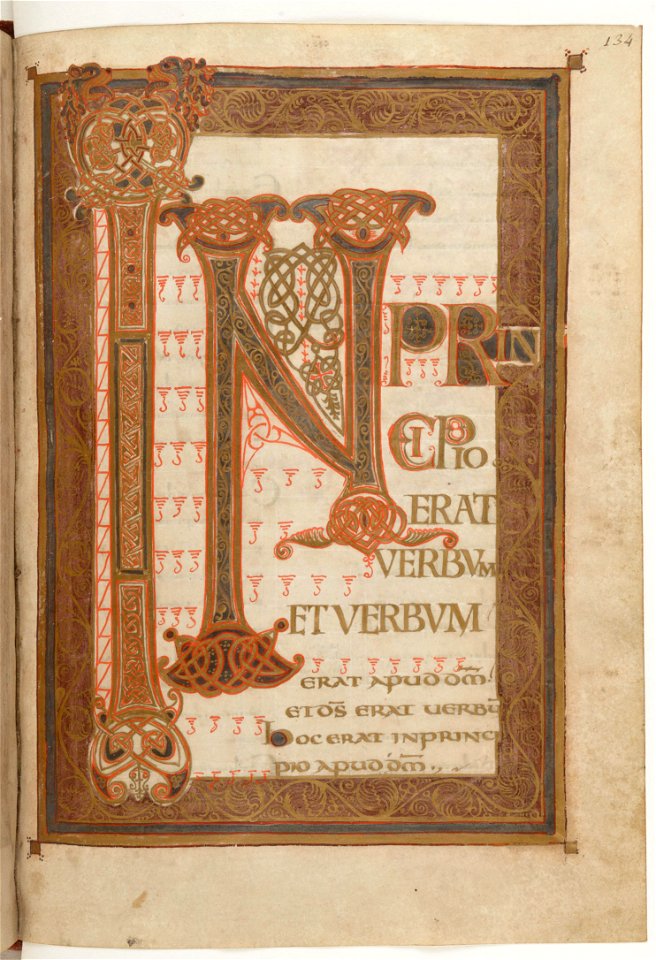 134
IN PRIN
CIPIO
ERAT
VERBVM
ET VERBVM
ERAT APUD DM̄
ET DS̄ ERAT UERBŪ
hOC ERAT INPRINCI
PIO APUD DM̄.,